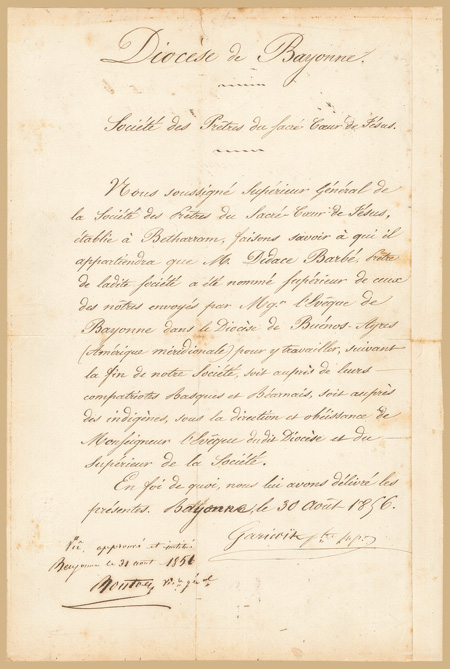 Diocèse de Bayonne.
Société des Prêtres du sacré Cœur de Jésus.
Nous soussigné Supérieur Général de
la Société des Prêtres du Sacré-Cœur de Jésus,
établie à Betharram, faisons savoir à qui il
appartiendra que M. Didace Barbé, Prêtre
de ladite Société a été nommé Supérieur de ceux
des nôtres envoyés par Mgr. l'Evêque de
Bayonne dans le Diocèse de Buénos-Ayres
(Amérique méridionale) pour y travailler, suivant
la fin de notre Société, soit auprès de leurs
compatriotes Basques et Béarnais, soit auprès
des indigènes, sous la direction et obéissance de
Monseigneur l'Evêque dudit Diocèse et du
supérieur de la Société.
En foi de quoi, nous lui avons délivré les
présentes. Bayonne, le 30 Août 1856.
Garicoïts ptre Supr
Vu, approuvé et
Bayonne le 31 août 1856
Vic. gén.